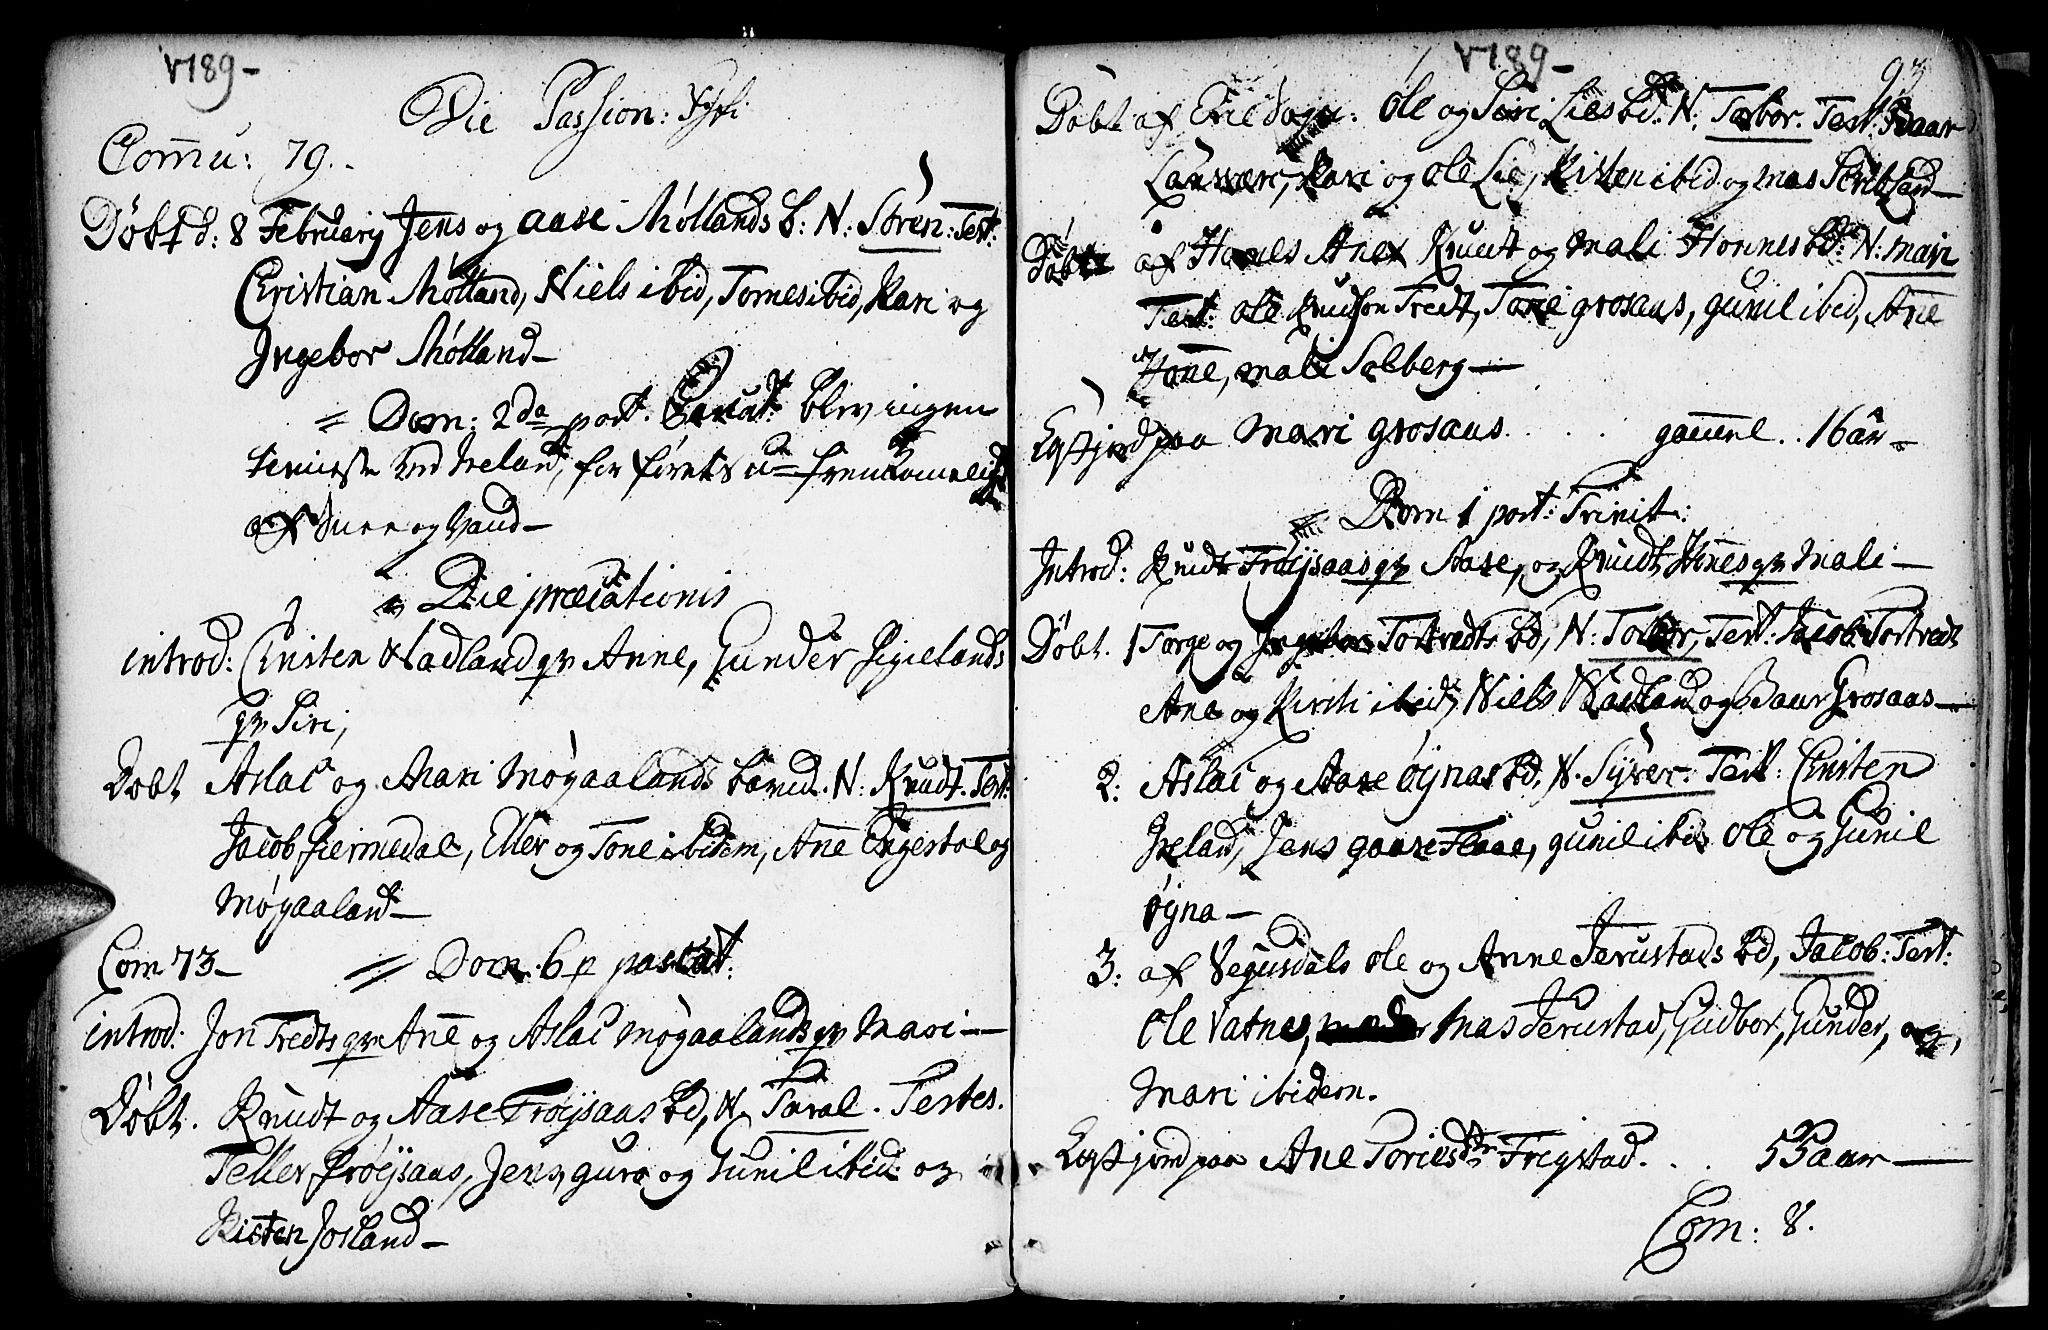 1789-
Die Passion:
Commu: 79.
Döbt d: 8 February Jens og aase Møllands b: N: Sören: Test:
Cristian Mölland, Niels ibid, Tornes ibid, Kari og
Ingebor Mölland-
Dom: 2da post. blev ingen
tieniste ved Ireland, for förets u=fremkomelig
af Snee og Vand-
Die præcationis
introd: Cristen Hadland qv Anne, Gunder
qv Siri,
Döbt Aslac og Mari Møgaalands barn. N. Knudt. Test:
Jacob Tiermedal, Eller og Tone ibidem, Ane Engestøl og
Møgaaland-
Com 73-
Dom. 6 p pascat:
introd: Jon Tredts qv Ane og Aslac Møgaalands qv Mari-
Döbt. Knudt og Aase Fröysaas bd, N. Taral. Testes.
Teller Fröysaas, Jens, guro og Gunil ibid: og
Kisten Josland-
1789-
93
Döbt af Ole og Siri Lies bd. N: Torbor. Test: Baar
Kari og Ole Lie, Kisten ibid og mas
Döbt af Hones Anex Knudt og mali Honnes bd: N: mari
Test: ole Knudson Tredt, Tone grosaas, gunil ibid, Ane
Hone, mali Solberg-
Egstjord paa Mari grosaas . . . gamel . . 16 aar-
Dom 1 post: Trinit:
Introd: Knudt Fröysaas qv Aase, og Knudt Hones qv Mali-
Döbt. 1 Torge og Ingebor Tortvedts bd, N: Test: Jacob Tortvedt
Ane og Kirsti ibid, Niels Hadland og Baar Grosaas-
2: Aslac og Aase öynas bd. N. Syver. Test: Cristen
Ireland, Jens gaase Flaae, gunil ibid Ole og Gunil
öyna-
3: af Vegusdals ole og Anne Jerustads bd, Jacob: Test:
Ole Vatne, mas Jerustad, Gudbor, Gunder, og
Mari ibidem.
Egstjord paa Ane Frigstad. . . 55 aar-
Com: 8.